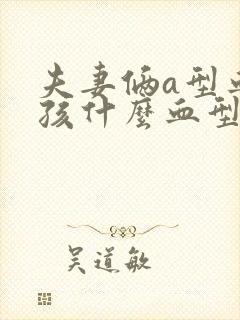 夫妻俩a型血
孩什麼血型
吴道敏